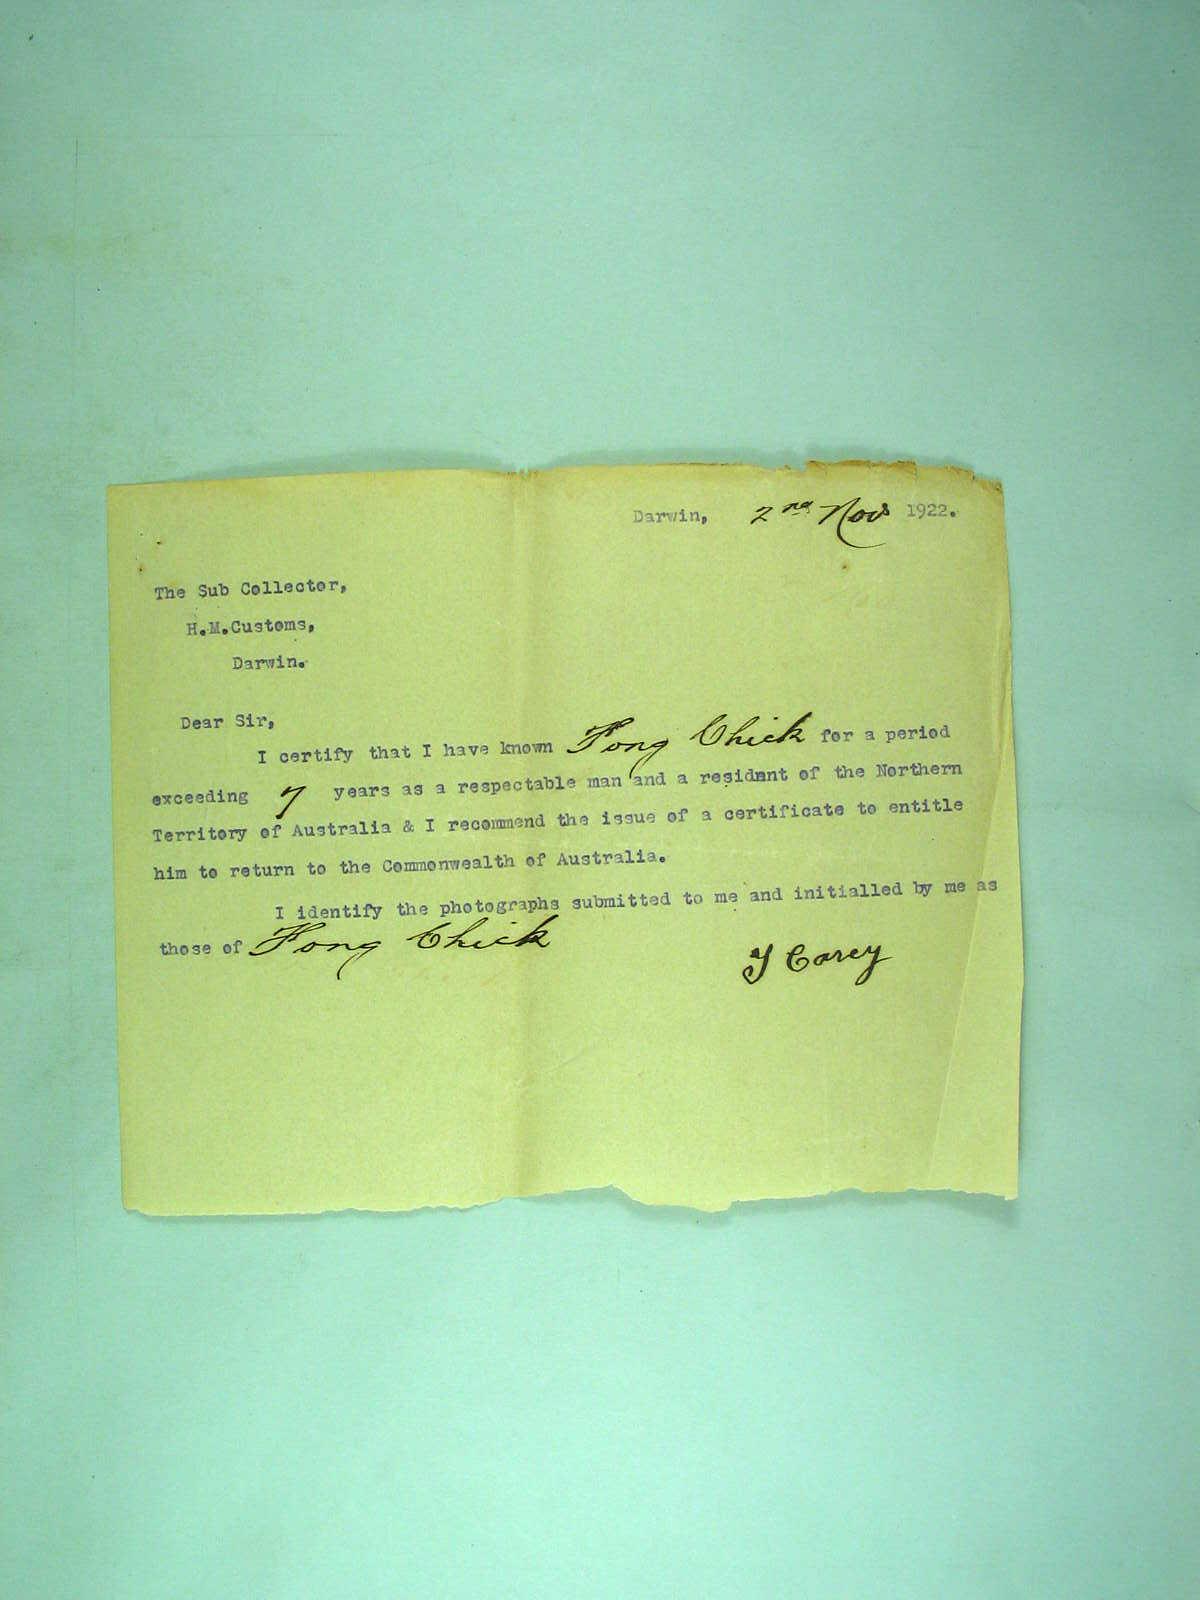 Darwin, 2nd Nov 1922.
The Sub Collector,
H.M.Customs,
Darwin.
Dear Sir,
I certify that I have known Fong Chick for a period
exceeding 7 years as a respectable man and a resident of the Northern
Territory of Australia & I recommend the issue of a certificate to entitle
him to return to the Commonwealth of Australia.
I identify the photographs submitted to me and initialled by me as
those of Fong Chick
J Carey